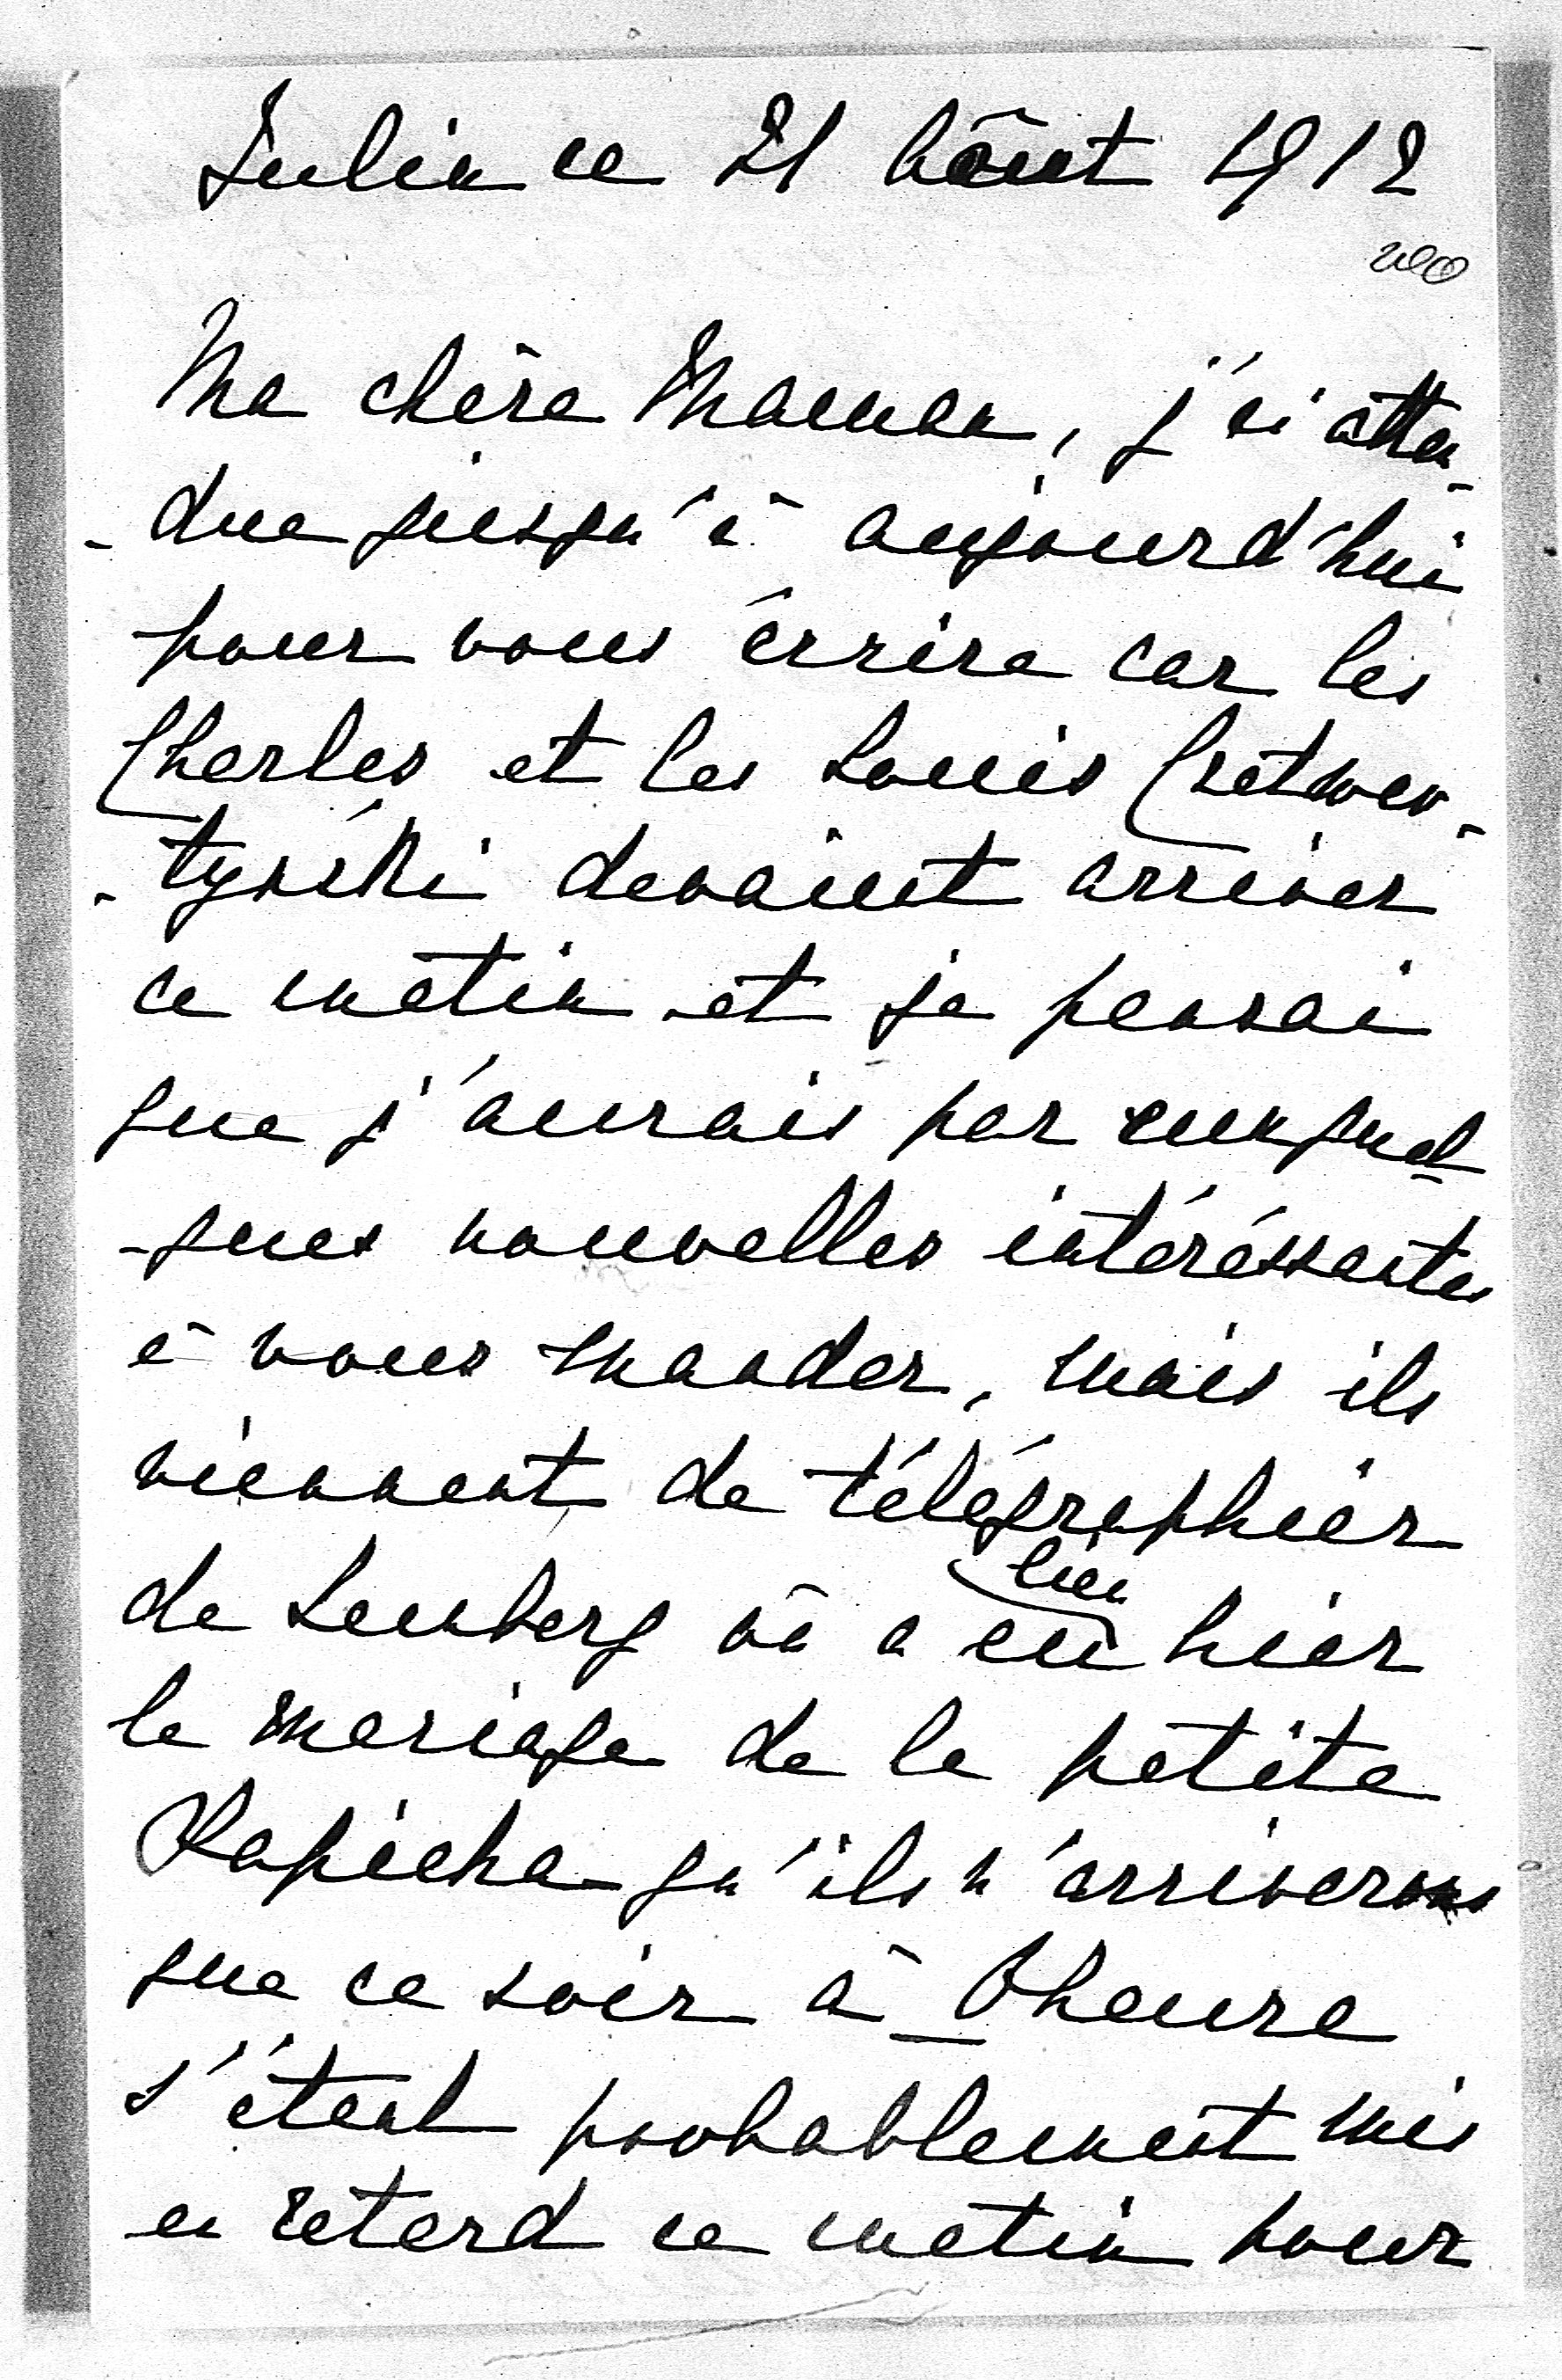 Julin ce 21 Août 1912
200
Ma chère Maman, j'ai atten-
-due jusqu'à aujourd'hui
pour vous écrire car les
Charles et les Louis Czetwer-
-tyński devaient arriver
ce matin et je pensai
que j'aurais par eux quel-
-ques nouvelles intéréssantes
à vous mander, mais ils
viennent de télégraphier
de Lemberg où a eu lieu hier
le mariage de la petite
Rapicha qu'ils n'arriverons
que ce soir à 6 heure
s'étant probablement mis
en retard ce matin pour